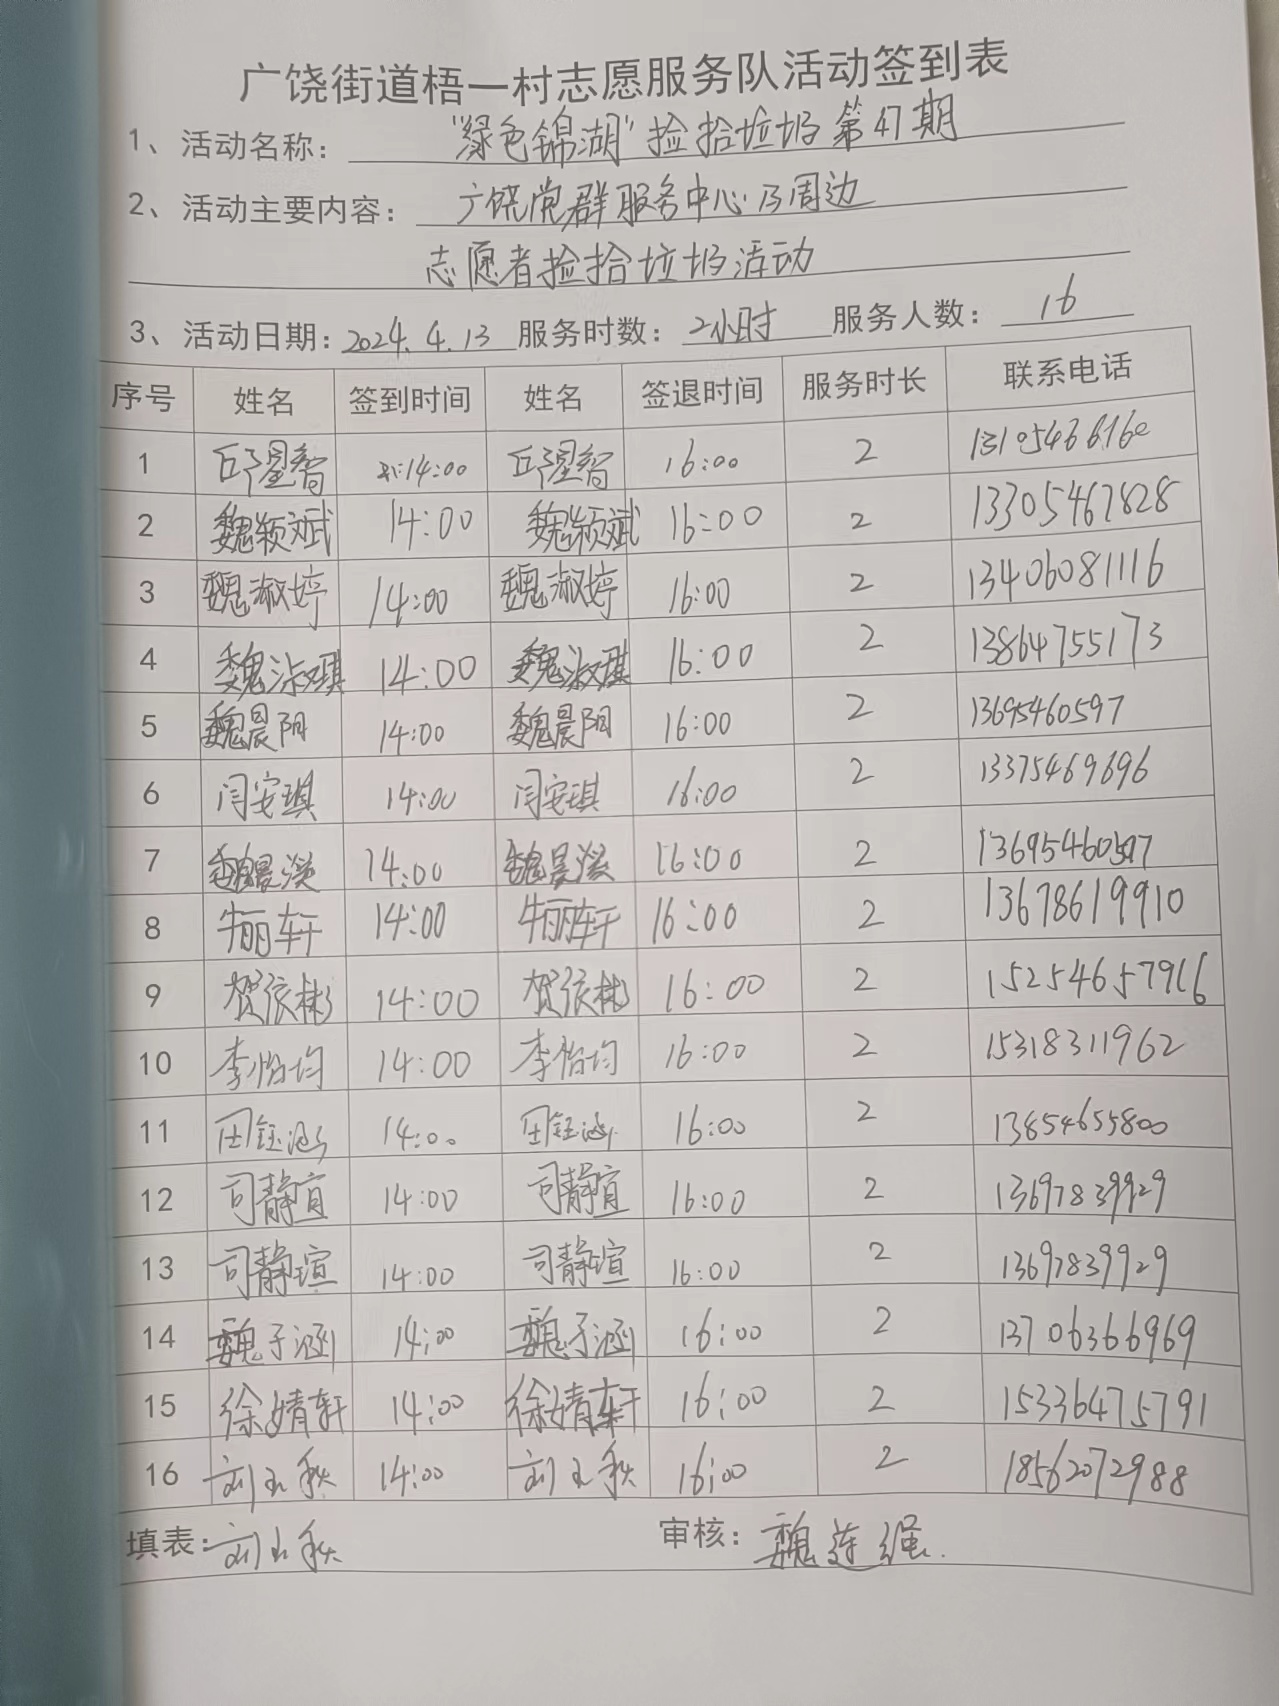 广饶街道梧一村志愿服务队活动签到表
1、活动名称： "绿色锦湖"捡拾垃圾第47期
2、活动主要内容： 广饶党群服务中心及周边
志愿者捡拾垃圾活动
3、活动日期：2024.4.13 服务时数：2小时 服务人数：16
序号 姓名 签到时间 姓名 签退时间 服务时长 联系电话
1 邱星智 14:00 邱星智 16:00 2
2 魏颖斌 14:00 魏颖斌 16:00 2 13305467828
3 魏淑婷 14:00 魏淑婷 16:00 2 13406081116
4 魏淑琪 14:00 魏淑琪 16:00 2 13864755173
5 魏晨阳 14:00 魏晨阳 16:00 2 13695460597
6 闫安琪 14:00 闫安琪 16:00 2 13375469696
7 魏晨溪 14:00 魏晨溪 16:00 2 13695460597
8 牛丽轩 14:00 牛丽轩 16:00 2 13678619910
9 贺张彬 14:00 贺张彬 16:00 2 15254657916
10 李怡均 14:00 李怡均 16:00 2 15318311962
11 田钰涵 14:00 田钰涵 16:00 2 13854655800
12 司静宜 14:00 司静宜 16:00 2 13697839929
13 司静瑄 14:00 司静瑄 16:00 2 13697839929
14 魏子涵 14:00 魏子涵 16:00 2 13706366969
15 徐婧轩 14:00 徐婧轩 16:00 2 15336475791
16 刘玉秋 14:00 刘玉秋 16:00 2 18562072988
填表：刘玉秋 审核：魏连强